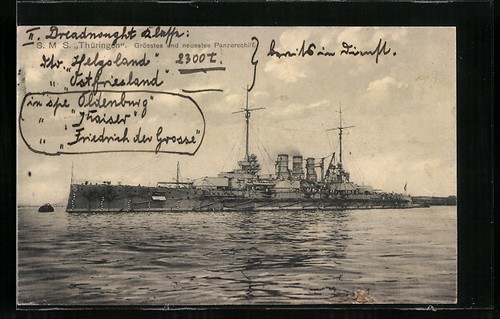 II. Dreadnought Klasse:
S. M. S. „Thüringen". Grösstes und neuestes Panzerschiff
dto. „Helgoland" 2300 t.
„ „Ostfriesland"
bereits in Dienst.
in spe „Oldenburg"
„ „Kaiser"
„ „Friedrich der Grosse"